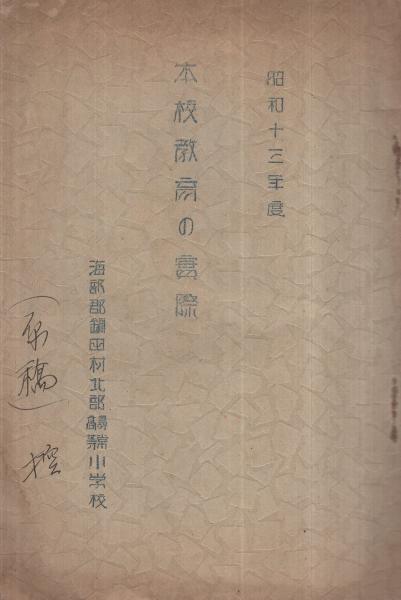 昭和十三年度
本校教育の實際
海部郡鍋田村北部尋常高等小学校
(原稿)
控